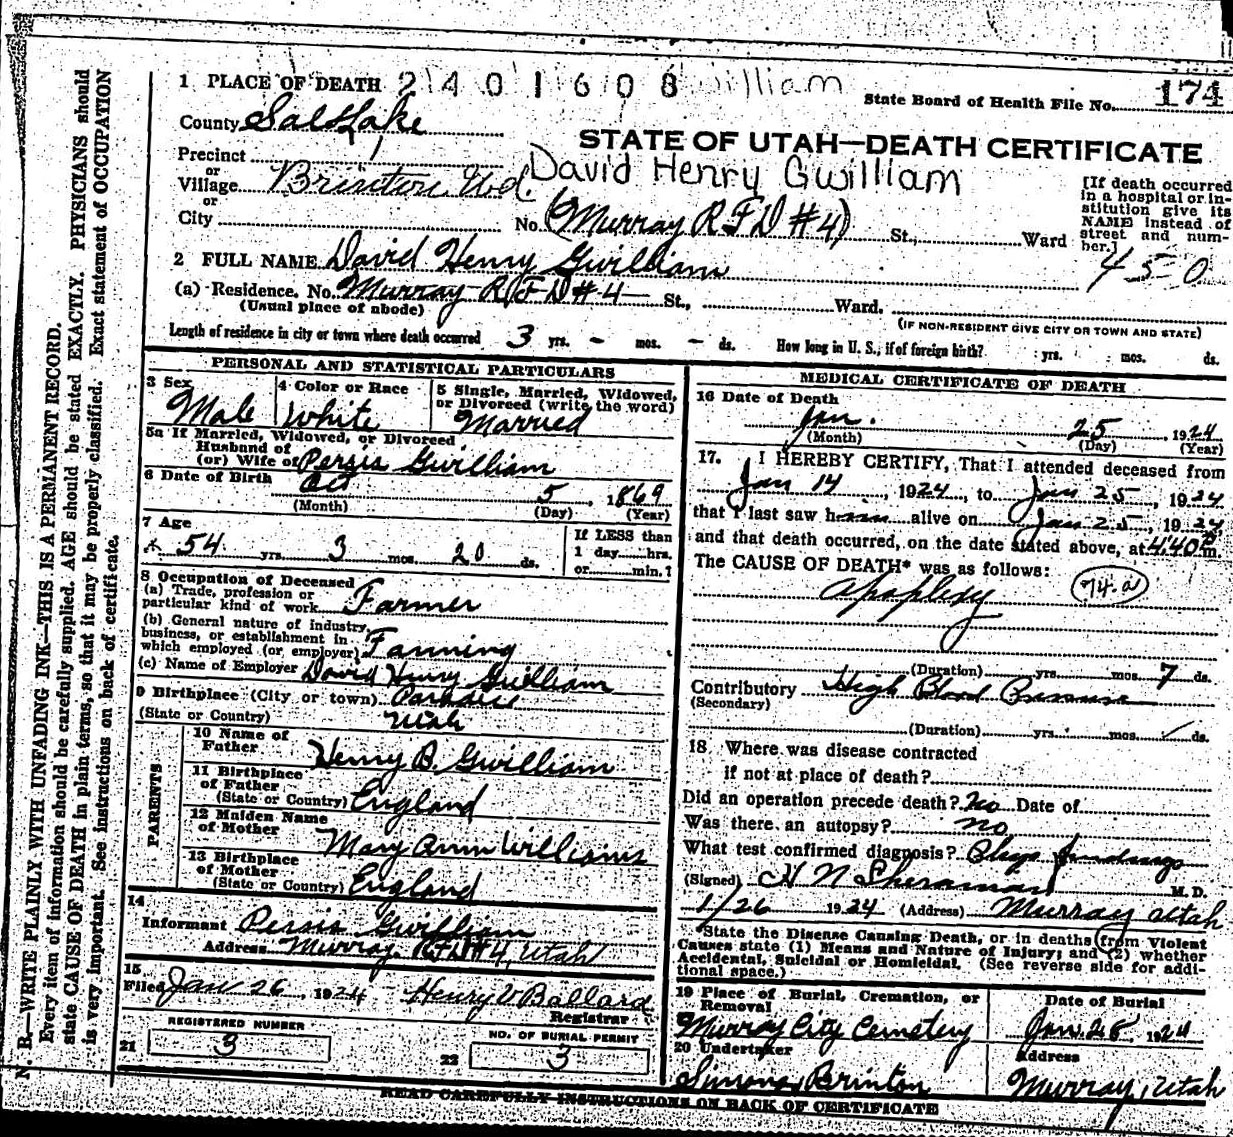 1 PLACE OF DEATH 2401608 William
State Board of Health File No. 174
County Salt Lake
STATE OF UTAH—DEATH CERTIFICATE
Precinct
or
Village Brinton Wd. David Henry Gwilliam
or
City No. (Murray R.F.D #4) St., Ward
[If death occurred
in a hospital or in-
stitution give its
NAME instead of
street and num-
ber.]
450
2 FULL NAME David Henry Gwilliam
(a) Residence. No. Murray R F D #4 St., Ward.
(Usual place of abode)
(IF NON-RESIDENT GIVE CITY OR TOWN AND STATE)
Length of residence in city or town where death occurred 3 yrs. - mos. - ds. How long in U. S., if of foreign birth? yrs. mos. ds.
PERSONAL AND STATISTICAL PARTICULARS
3 Sex
Male
4 Color or Race
White
5 Single, Married, Widowed,
or Divorced (write the word)
Married
5a If Married, Widowed, or Divorced
Husband of
(or) Wife of Persis Gwilliam
6 Date of Birth Oct 5, 1869
(Month) (Day) (Year)
7 Age
54 yrs. 3 mos. 20 ds.
If LESS than
1 day hrs.
or min.?
8 Occupation of Deceased
(a) Trade, profession or
particular kind of work Farmer
(b) General nature of industry,
business, or establishment in
which employed (or employer) Farming
(c) Name of Employer David Henry Gwilliam
9 Birthplace (City or town) Paradise
(State or Country) Utah
PARENTS
10 Name of
Father Henry B. Gwilliam
11 Birthplace
of Father
(State or Country) England
12 Maiden Name
of Mother Mary Ann Williams
13 Birthplace
of Mother
(State or Country) England
14
Informant Persis Gwilliam
Address Murray. RFD #4, Utah
15.
Filed Jan 26, 1924 Henry V Ballard
Registrar
REGISTERED NUMBER
21 3
NO. OF BURIAL PERMIT
22 3
MEDICAL CERTIFICATE OF DEATH
16 Date of Death
Jan. 25, 1924
(Month) (Day) (Year)
17. I HEREBY CERTIFY, That I attended deceased from
Jan 14, 1924, to Jan 25, 1924
that I last saw him alive on Jan 25, 1924,
and that death occurred, on the date stated above, at 4:40 P m.
The CAUSE OF DEATH* was as follows:
Apoplexy 74.a
(Duration) yrs. mos. 7 ds.
Contributory High Blood Pressure
(Secondary)
(Duration) yrs. mos. ds.
18 Where was disease contracted
if not at place of death?
Did an operation precede death? No Date of
Was there an autopsy? no
What test confirmed diagnosis? Phys findings
(Signed) H N Sheranian M. D.
1/26 1924 (Address) Murray Utah
*State the Disease Causing Death, or in deaths from Violent
Causes state (1) Means and Nature of Injury; and (2) whether
Accidental, Suicidal or Homicidal. (See reverse side for addi-
tional space.)
19 Place of Burial, Cremation, or
Removal
Murray City Cemetery
Date of Burial
Jan. 28, 1924
20 Undertaker
Simons, Brinton
Address
Murray, Utah
READ CAREFULLY INSTRUCTIONS ON BACK OF CERTIFICATE
N. B.—WRITE PLAINLY WITH UNFADING INK—THIS IS A PERMANENT RECORD.
Every item of information should be carefully supplied. AGE should be stated EXACTLY. PHYSICIANS should
state CAUSE OF DEATH in plain terms, so that it may be properly classified. Exact statement of OCCUPATION
is very important. See instructions on back of certificate.